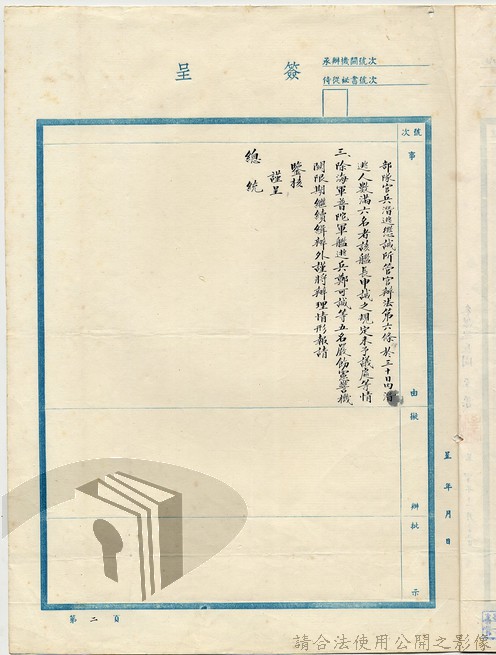 簽呈
承辦機關號次
侍從秘書號次
號次
事
由
擬
辦
批
示
部隊官兵潛逃懲誡所管官辦法第六條於三十日內潛
逃人數滿六名者該艦長申誡之規定未予議處等情
三、除海軍普陀軍艦逃兵鄭可誠等五名嚴飭憲警機
關限期繼續緝辦外謹將辦理情形報請
鑒核
謹呈
總統
呈 年 月 日
第二頁
請合法使用公開之影像